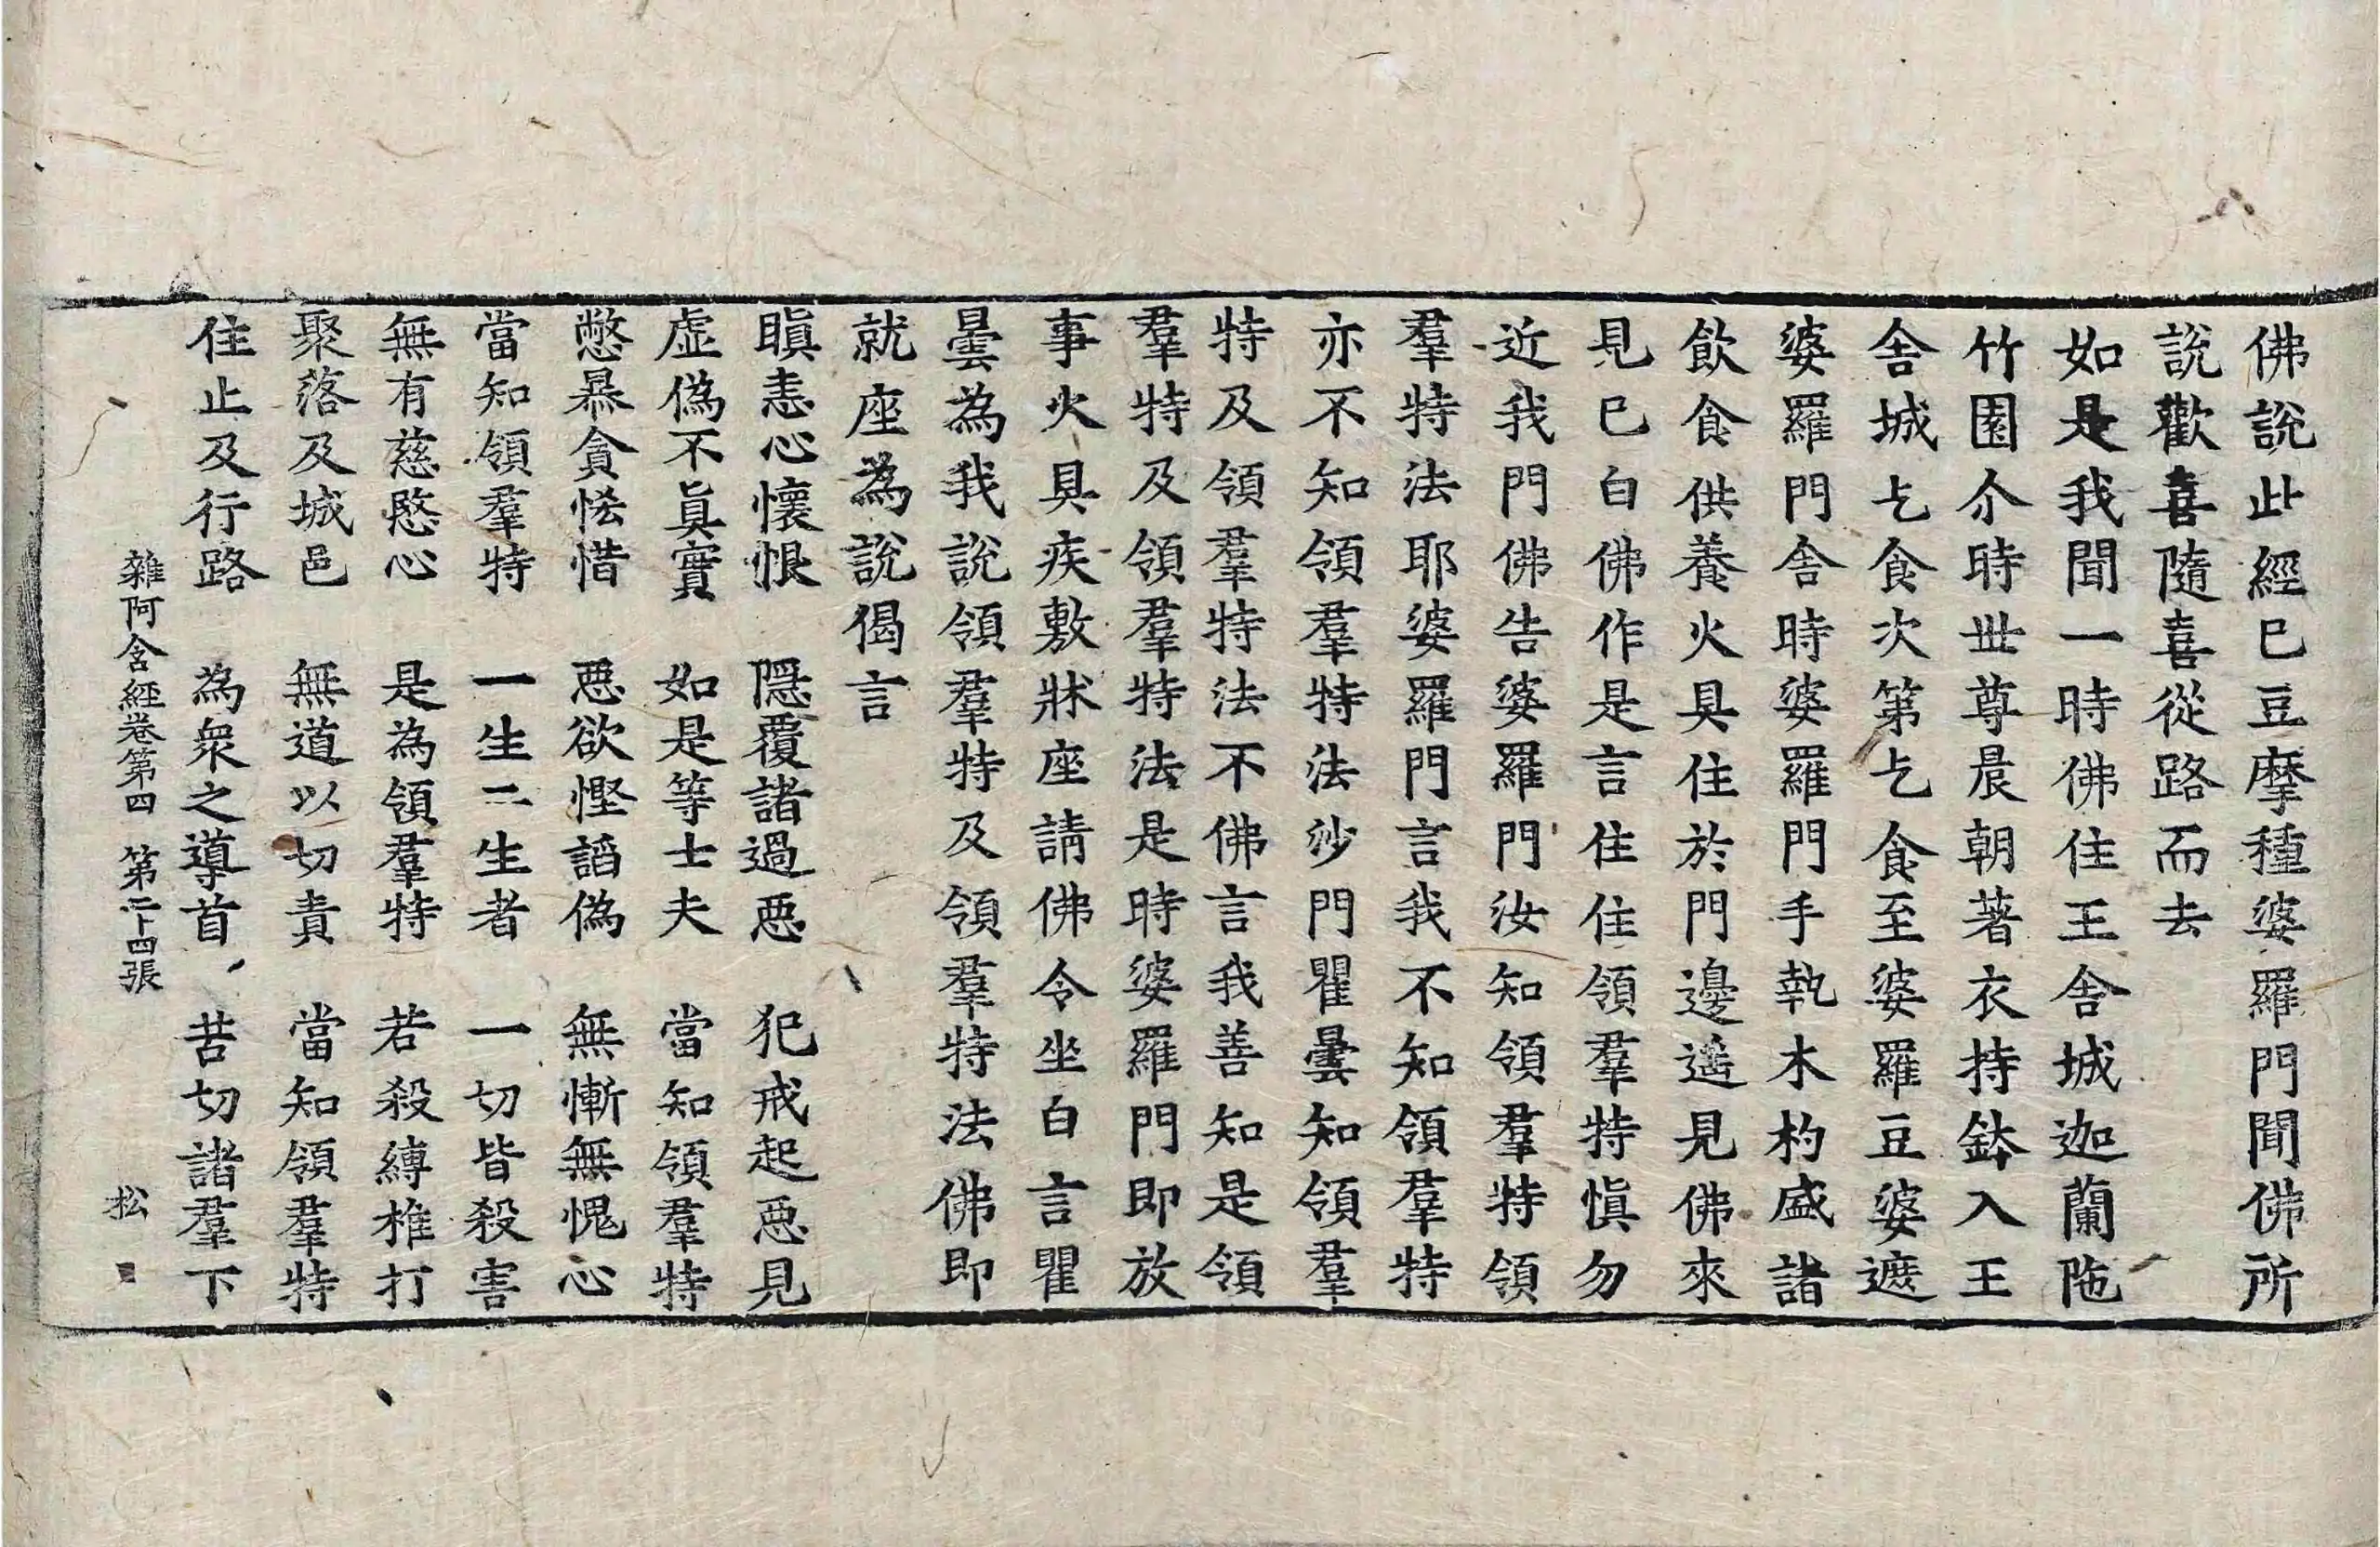 佛說此經已豆摩種婆羅門聞佛所
說歡喜隨喜從路而去
如是我聞一時佛住王舍城迦蘭陁
竹園尒時世尊晨朝著衣持鉢入王
舍城乞食次第乞食至婆羅豆婆遮
婆羅門舍時婆羅門手執木杓盛諸
飲食供養火具住於門邊遥見佛來
見已白佛作是言住住領羣特慎勿
近我門佛告婆羅門汝知領羣特領
羣特法耶婆羅門言我不知領羣特
亦不知領羣特法沙門瞿曇知領羣
特及領羣特法不佛言我善知是領
羣特及領羣特法是時婆羅門即放
事火具疾敷牀座請佛令坐白言瞿
曇為我說領羣特及領羣特法佛即
就座為說偈言
瞋恚心懷恨　隱覆諸過惡　犯戒起惡見
虛偽不真實　如是等士夫　當知領羣特
憋暴貪悋惜　惡欲慳諂偽　無慚無愧心
當知領羣特　一生二生者　一切皆殺害
無有慈愍心　是為領羣特　若殺縛椎打
聚落及城邑　無道以切責　當知領羣特
住止及行路　為衆之導首　苦切諸羣下
雜阿含經卷第四　第二十四張　松